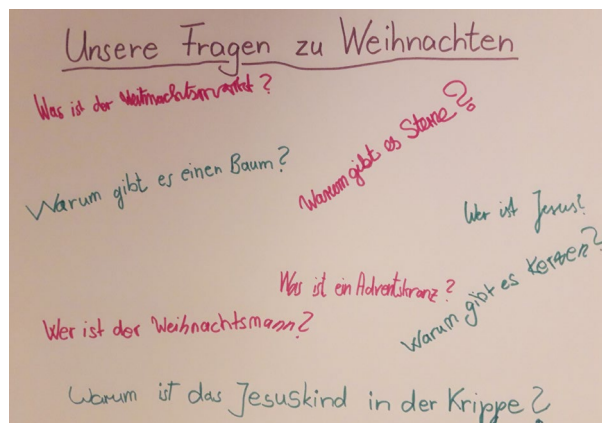 Unsere Fragen zu Weihnachten
Was ist der Weihnachtsmarkt?
Warum gibt es Sterne?
Warum gibt es einen Baum?
Wer ist Jesus?
Was ist ein Adventskranz?
Warum gibt es Kerzen?
Wer ist der Weihnachtsmann?
Warum ist das Jesuskind in der Krippe?